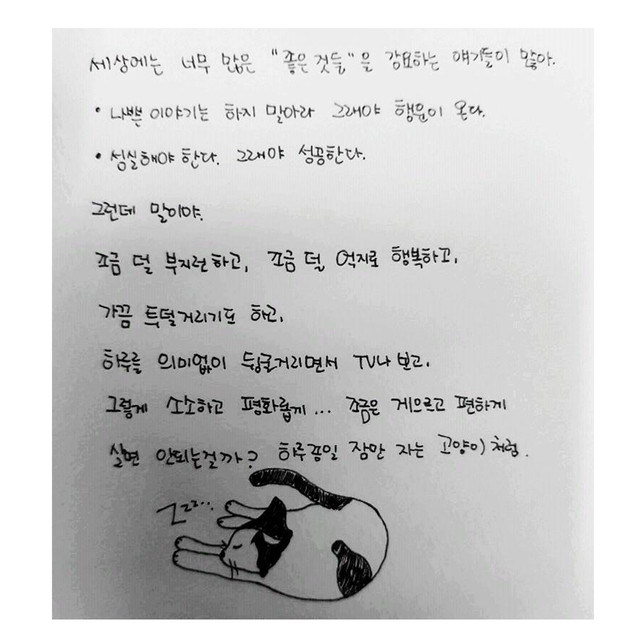 세상에는 너무 많은 "좋은것들"을 강요하는 얘기들이 많아.
• 나쁜 이야기는 하지 말아라 그래야 행운이 온다.
• 성실해야 한다. 그래야 성공한다.
그런데 말이야.
조금 덜 부지런하고, 조금 덜 억지로 행복하고,
가끔 투덜거리기도 하고,
하루를 의미없이 뒹굴거리면서 TV나 보고,
그렇게 소소하고 평화롭게... 조금은 게으르고 편하게
살면 안되는걸까? 하루종일 잠만 자는 고양이처럼.
Zzz...